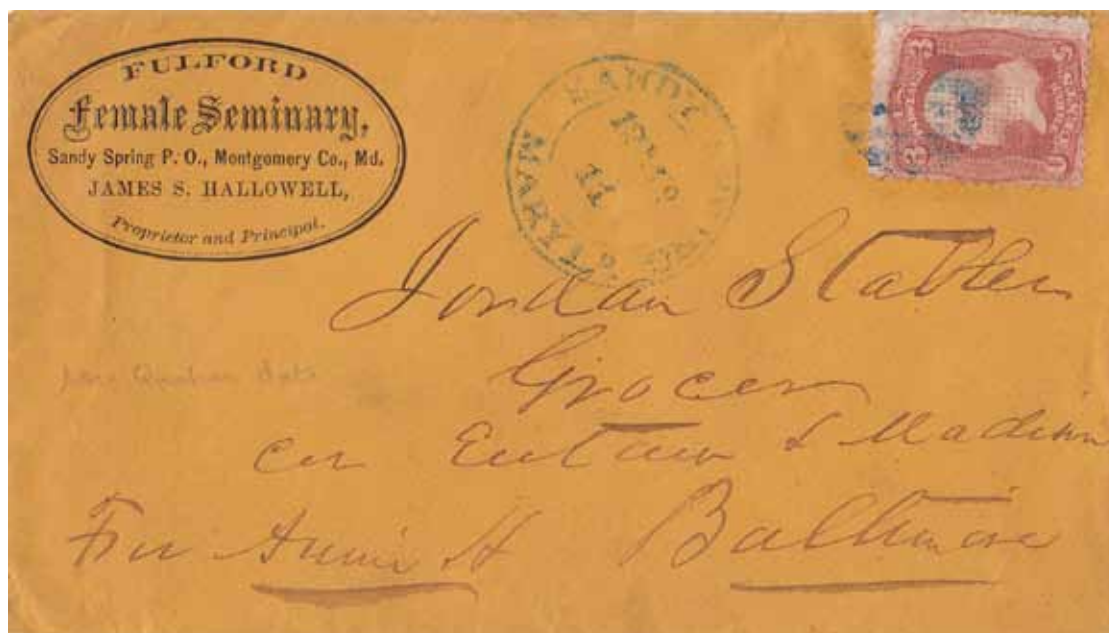 FULFORD
Female Seminary,
Sandy Spring P. O., Montgomery Co., Md.
JAMES S. HALLOWELL,
Proprietor and Principal.
SANDY SPRING MARYLAND
12
11
3 CENTS 3
Jordan Stabler
Grocer
cor Eutaw & Madison
For Annie H Baltimore
note Quaker date